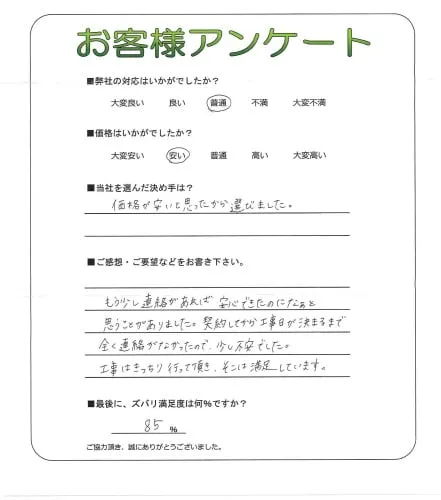 お客様アンケート
■弊社の対応はいかがでしたか?
大変良い 良い 普通 不満 大変不満
■価格はいかがでしたか?
大変安い 安い 普通 高い 大変高い
■当社を選んだ決め手は?
価格が安いと思ったから選びました。
■ご感想・ご要望などをお書き下さい。
もう少し連絡があれば安心できたのになぁと
思うことがありました。契約してから工事日が決まるまで
全く連絡がなかったので、少し不安でした。
工事はきっちり行って頂き、そこは満足しています。
■最後に、ズバリ満足度は何%ですか?
85 %
ご協力頂き、誠にありがとうございました。